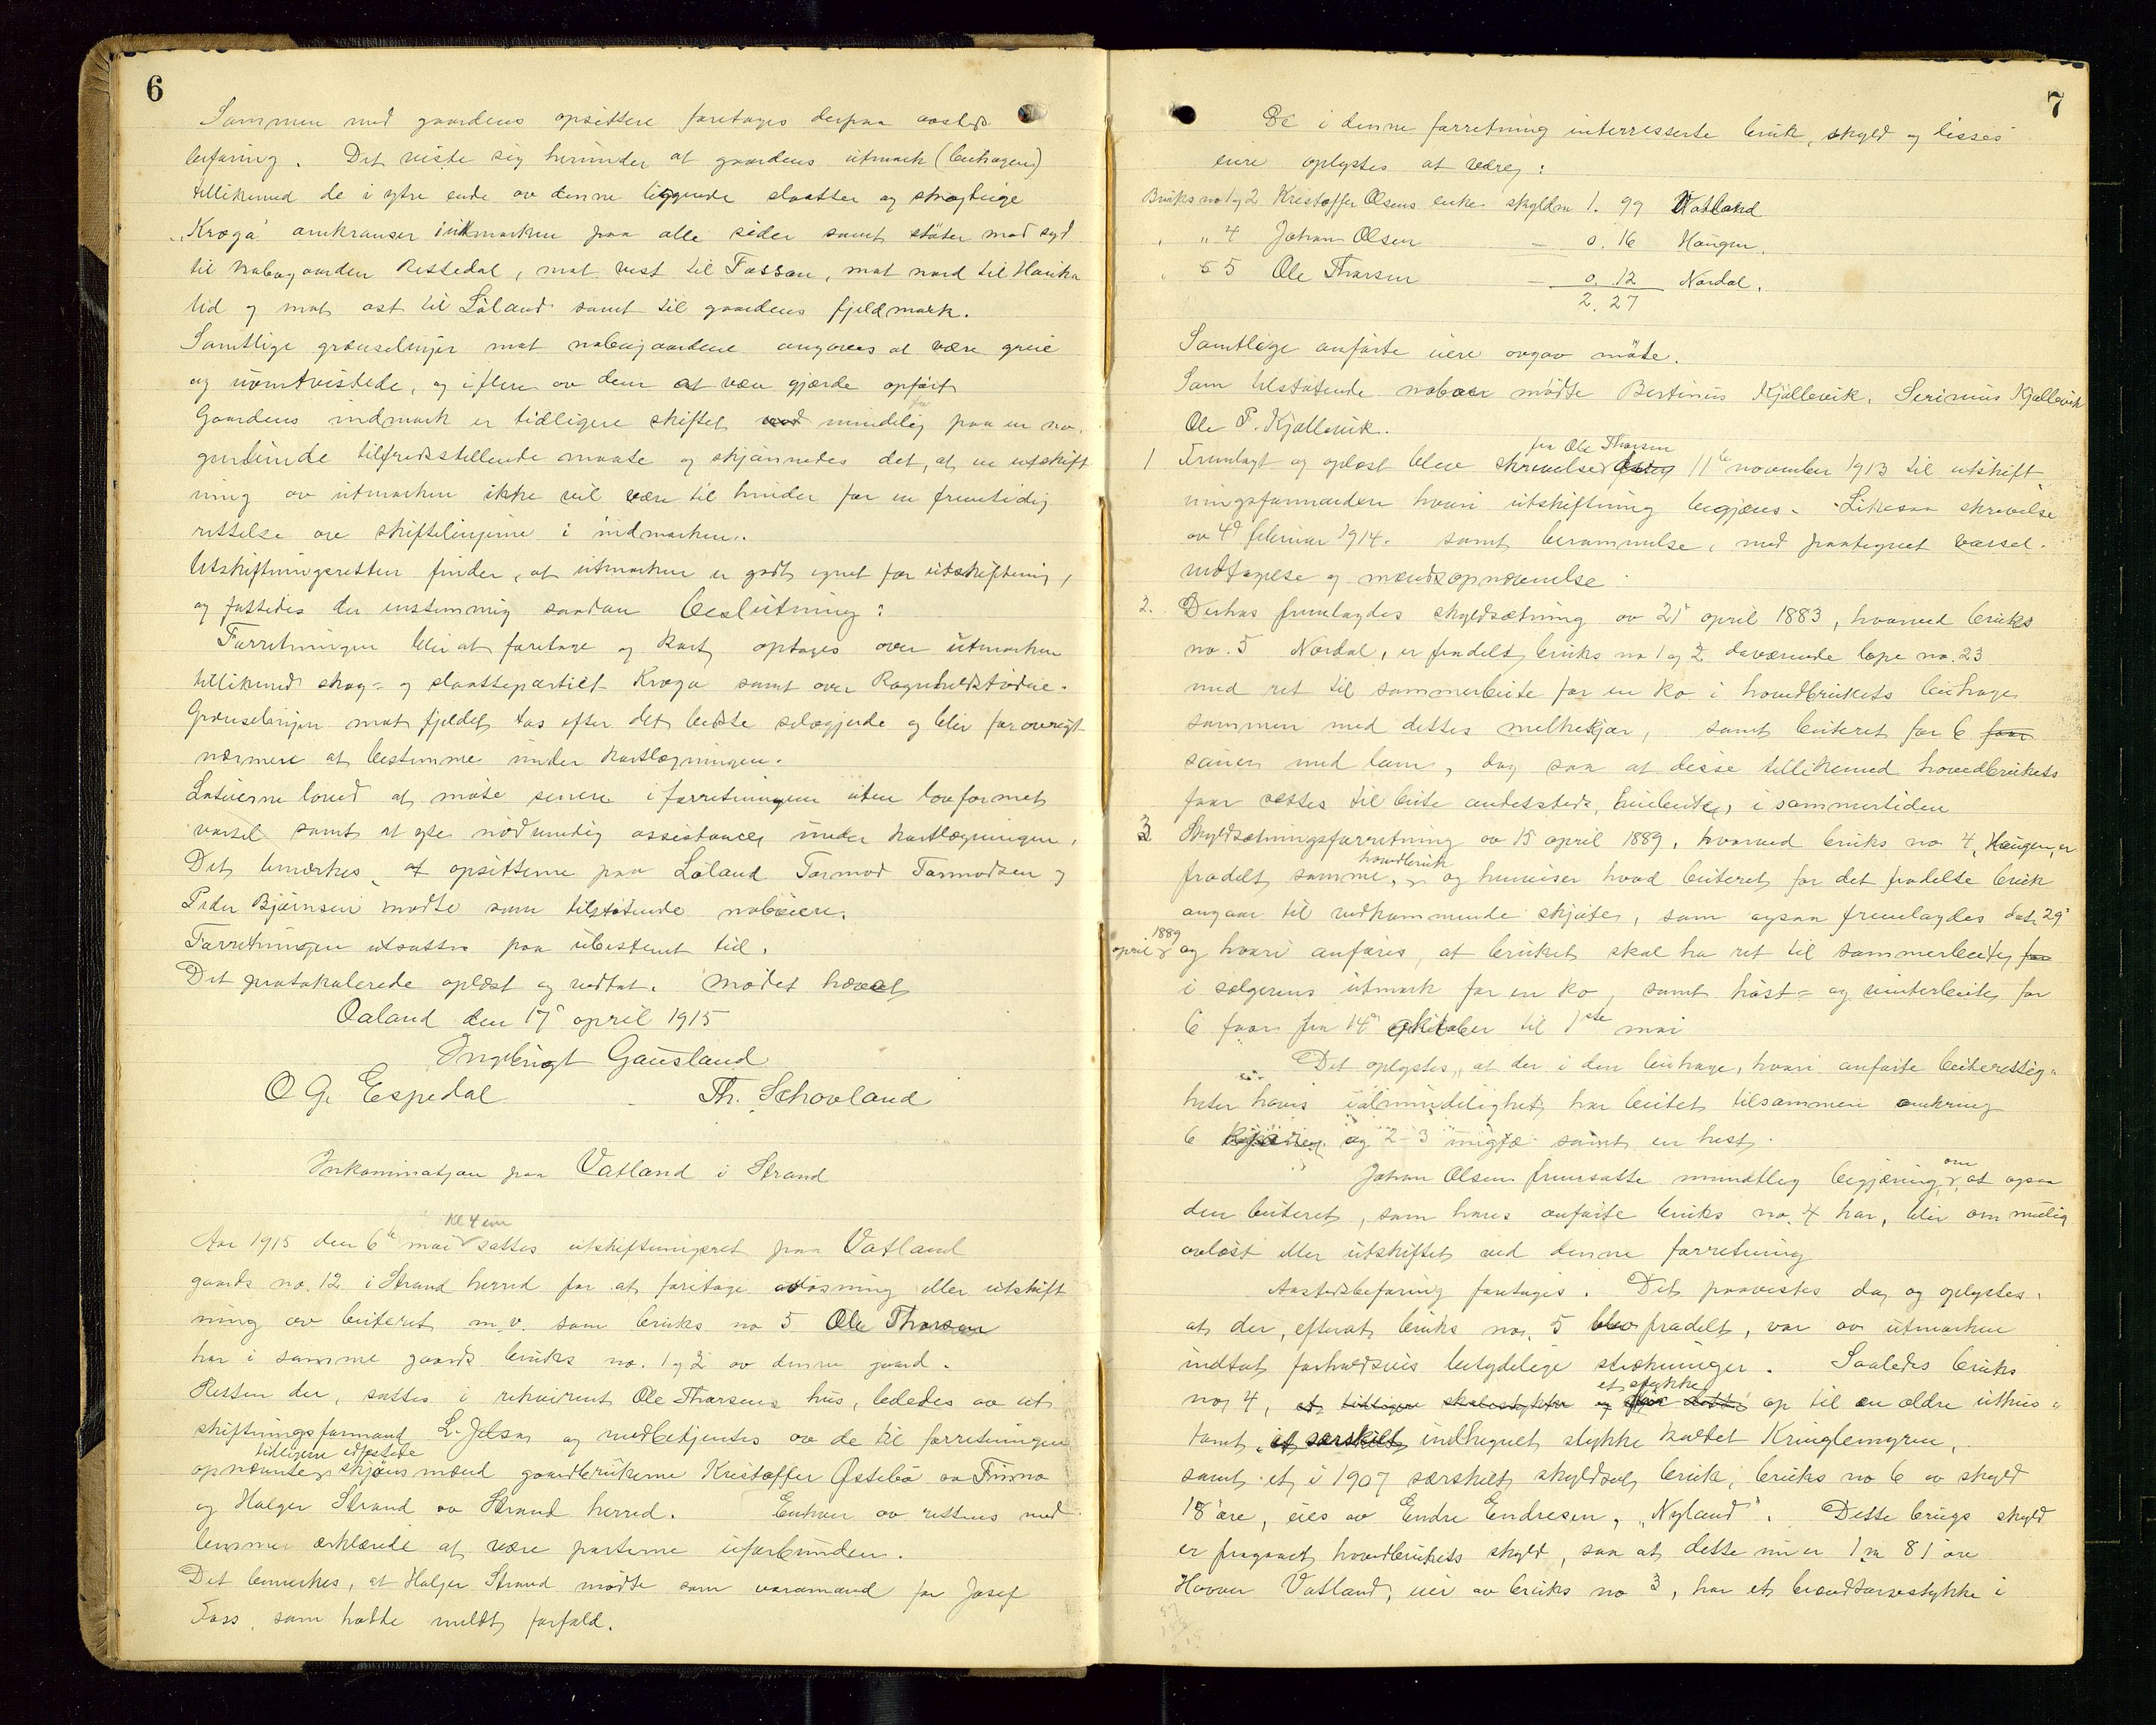 6
Sammen med gaardens opsittere foretages derpaa aasteds
befaring. Det viste sig herunder at gaardens utmark (beitehagen)
tillikemed de i ytre ende av denne liggende slaatter og skogteige
"Kroga" omkranser indmarken paa alle sider samt støter mod syd
til nabogaarden Ressedal, mot vest til Fossan, mot nord til Hauka
lid og mot øst til Løland samt til gaardens fjeldmark.
Samtlige grænselinjer mot nabogaardene angaves at være greie
og uomtvistede, og i flere av dem at være gjærde opført
Gaardens indmark er tidligere skiftet mindelig paa en no.
genlunde tilfredsstillende maate og skjønnedes det, at en utskift
ning av utmarken ikke vil være til hinder for en fremtidig
rettelse av skiftelinjerne i indmarken.
Utskiftningsretten finder, at utmarken er godt egnet for utskiftning,
og fattedes der enstemmig saadan beslutning:
Forretningen blir at foretage og kart optages over utmarken
tillikemed skog= og slaattepartiet Kroga samt over Ragnhildstødne.
Grænselinjen mot fjeldet tas efter det bedste selvgjerde og blir forøvrigt
nærmere at bestemme under kartlægningen.
Loteierne loved at møte senere i forretningen uten lovformet
varsel samt at yte nødvendig assistance under kartlægningen.
Det bemærkes, at opsitterne paa Løland Tormod Tormodsen og
Peder Bjørnsen mødte som tilstøtende naboeiere.
Forretningen utsattes paa ubestemt tid.
Det protokollerede oplæst og vedtat. Mødet hævet
Oaland den 17de april 1915
Ingebrigt Gausland
O G. Espedal Th. Schovland
Inkamination paa Vatland i Strand
kl 4 em
Aar 1915 den 6te mai sattes utskiftningsret paa Vatland
gaards no. 12 i Strand herred for at foretage avløsning eller utskift
ning av beiteret m.v. som bruks no 5 Ole Thorsen
har i samme gaards bruks no. 1 og 2 av denne gaard.
Retten der, sattes i rekvirent Ole Thorsens hus, lededes av ut
skiftningsformand L. Jelsa og medbetjentes av de til forretningen
tidligere edfæstede
opnævnte skjønsmænd gaardbrukerne Kristoffer Østebø av Finnø
og Holger Strand av Strand herred. Enhver av rettens med
lemmer erklærede at være parterne uforbunden.
Det bemerkes, at Holger Strand mødte som varamand for Josef
Foss, som hadde meldt forfald.
7
De i denne forretning interesserte bruk, skyld og disses
eiere oplystes at være:
Bruks no 1 og 2 Kristoffer Olsens enke skyldm 1. 99 Vatland
" " 4 Johan Olsen — 0. 16 Haugen.
" 5 5 Ole Thorsen — 0. 12 Nordal.
2. 27
Samtlige anførte eiere avgav møte.
Som tilstøtende naboer mødte Bertinius Kjøllevik, Serinius Kjøllevik
Ole P. Kjøllevik.
fra Ole Thorsen
1 Fremlagt og oplæst blev skrivelse 11te november 1913 til utskift
ningsformanden hvori utskiftning begjæres. Likesaa skrivelse
av 4de februar 1914. samt berammelse, med paategnet varsel.
vedtagelse og mændsopnævnelse.
2. Derhos fremlagdes skyldsætning av 21de april 1883, hvorved bruks
no. 5 Nordal, er fradelt bruks no 1 og 2 daværende løpe no. 23
med ret til sommerbeite for en ko i hovedbrukets beitehage
sammen med dettes melkekjør, samt beiteret for 6
sauer med lam, dog saa at disse tillikemed hovedbrukets
faar sættes til beite andetsteds, i sommertiden
3. Skyldsætningsforretning av 15 april 1889, hvorved bruks no 4, Haugen, er
hovedbruk
fradelt samme, og henviser hvad beiteret for det fradelte bruk
angaar til vedkommende skjøte, som ogsaa fremlagdes dat. 29de
1889
april og hvori anføres, at bruket skal ha ret til sommerbeite
i sælgerens utmark for en ko, samt høst= og vinterbeite for
6 faar fra 14de oktober til 1ste mai
Det oplystes, at der i den beitehage, hvori anførte beiterettig=
heter haves i almindelighet har beitet tilsammen omkring
6 og 2-3 ungfæ samt en hest.
om
Johan Olsen fremsatte mundtlig begjæring, at ogsaa
den beiteret, som hans anførte bruks no. 4 har, blir om mulig
avløst eller utskiftet ved denne forretning
Aastedsbefaring foretages. Det paavistes da og oplystes.
at der, efterat bruks no. 5 blev fradelt, var av utmarken
indtat forholdsvis betydelige strækninger. Saaledes bruks
et stykke
no 4, op til en ældre uthus=
tomt, indhegnet stykke kaldet Kringlemyren,
samt et i 1907 særskilt skyldsat bruk, bruks no 6 av skyld
18 øre, eies av Endre Endresen, "Nyland". Dette brugs skyld
er fragaaet hovedbrukets skyld, saa at dette nu er 1 m 81 øre
Haaver Vatland, eier av bruks no 3, har et brændtorvstykke i